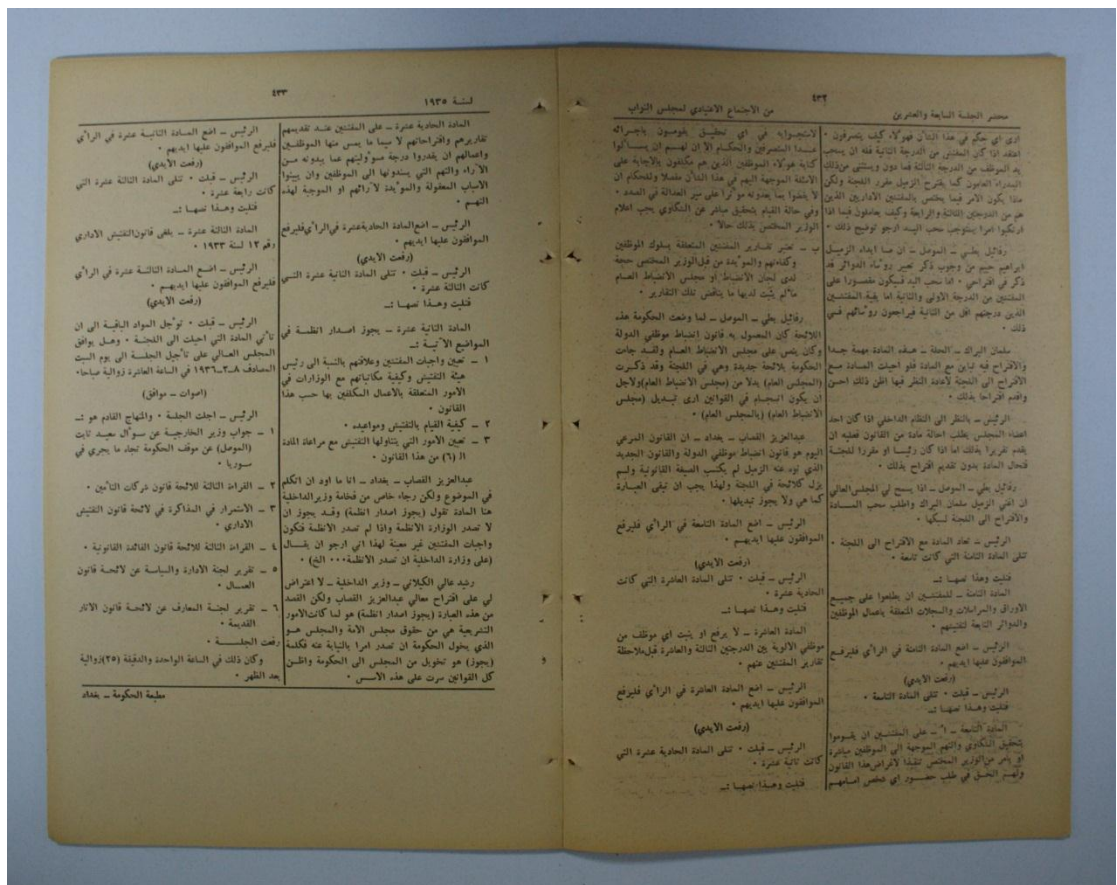 ٤٣٢
محضر الجلسة السابعة والعشرين
من الاجتماع الاعتيادي لمجلس النواب
ارى اي حكم في هذا الشأن فهؤلاء كيف يتصرفون ٠
اعتقد اذا كان المفتش من الدرجة الثانية فله ان يسحب
يد الموظف من الدرجة الثالثة فما دون ويستثنى من ذلك
المدراء العامون كما يقترح الزميل مقرر اللجنة ولكن
ماذا يكون الامر فيما يختص بالمفتشين الاداريين الذين
هم من الدرجتين الثالثة والرابعة وكيف يعاملون فيما اذا
ارتكبوا امرا يستوجب سحب اليد ارجو توضيح ذلك ٠
رفائيل بطي ــ الموصل ــ ان ما ابداه الزميل
ابراهيم حييم من وجوب ذكر تعبير رؤساء الدوائر قد
ذكر في اقتراحي ٠ اما سحب اليد فسيكون مقصورا على
المفتشين من الدرجة الاولى والثانية اما بقية المفتشين
الذين درجتهم اقل من الثانية فيراجعون رؤسائهم في
ذلك ٠
سلمان البراك ــ الحلة ــ هذه المادة مهمة جدا
والاقتراح فيه تباين مع المادة فلو احيلت المادة مع
الاقتراح الى اللجنة لاعادة النظر فيها اظن ذلك احسن
واقدم اقتراحا بذلك ٠
الرئيس ــ بالنظر الى النظام الداخلي اذا كان احد
اعضاء المجلس يطلب احالة مادة من القانون فعليه ان
يقدم تقريرا بذلك اما اذا كان رئيسا او مقررا للجنة
فتحال المادة بدون تقديم اقتراح بذلك ٠
رفائيل بطي ــ الموصل ــ اذا يسمح لي المجلس العالي
ان اثني الزميل سلمان البراك واطلب سحب المادة
والاقتراح الى اللجنة لسبكها ٠
الرئيس ــ تعاد المادة مع الاقتراح الى اللجنة ٠
تتلى المادة الثامنة التي كانت تاسعة ٠
فتليت وهذا نصها :ــ
المادة الثامنة ــ للمفتشين ان يطلعوا على جميع
الاوراق والمراسلات والسجلات المتعلقة باعمال الموظفين
والدوائر التابعة لتفتيشهم ٠
الرئيس ــ اضع المادة الثامنة في الرأي فليرفع
الموافقون عليها ايديهم ٠
(رفعت الايدي)
الرئيس ــ قبلت ٠ تتلى المادة التاسعة ٠
فتليت وهذا نصها :ــ
المادة التاسعة ــ أ ــ على المفتشين ان يقوموا
بتحقيق الشكاوي والتهم الموجهة الى الموظفين مباشرة
او بأمر من الوزير المختص تنفيذا لاغراض هذا القانون
ولهم الحق في طلب حضور اي شخص امامهم
لاستجوابه في اي تحقيق يقومون باجرائه
عدا المتصرفين والحكام الا ان لهم ان يسألوا
كتابة هؤلاء الموظفين الذين هم مكلفون بالاجابة على
الاسئلة الموجهة اليهم في هذا الشأن مفصلا وللحكام ان
لا يفشوا بما يعدونه مؤثرا على سير العدالة في الصدد ٠
وفي حالة القيام بتحقيق مباشر عن الشكاوي يجب اعلام
الوزير المختص بذلك حالا ٠
ب ــ تعتبر تقارير المفتشين المتعلقة بسلوك الموظفين
وكفاءتهم والمؤيدة من قبل الوزير المختص حجة
لدى لجان الانضباط او مجلس الانضباط العام
مالم يثبت لديها ما يناقض تلك التقارير ٠
رفائيل بطي ــ الموصل ــ لما وضعت الحكومة هذه
اللائحة كان المعمول به قانون انضباط موظفي الدولة
وكان ينص على مجلس الانضباط العام ولقد جاءت
الحكومة بلائحة جديدة وهي في اللجنة وقد ذكرت
(المجلس العام) بدلا من (مجلس الانضباط العام) ولاجل
ان يكون انسجام في القوانين ارى تبديل (مجلس
الانضباط العام) (بالمجلس العام) ٠
عبدالعزيز القصاب ــ بغداد ــ ان القانون المرعي
اليوم هو قانون انضباط موظفي الدولة والقانون الجديد
الذي نوه عنه الزميل لم يكتسب الصفة القانونية ولم
يزل كلائحة في اللجنة ولهذا يجب ان تبقى العبارة
كما هي ولا يجوز تبديلها ٠
الرئيس ــ اضع المادة التاسعة في الرأي فليرفع
الموافقون عليها ايديهم ٠
(رفعت الايدي)
الرئيس ــ قبلت ٠ تتلى المادة العاشرة التي كانت
الحادية عشرة ٠
فتليت وهذا نصها :ــ
المادة العاشرة ــ لا يرفع او يثبت اي موظف من
موظفي الالوية بين الدرجتين الثالثة والعاشرة قبل ملاحظة
تقارير المفتشين عنهم ٠
الرئيس ــ اضع المادة العاشرة في الرأي فليرفع
الموافقون عليها ايديهم ٠
(رفعت الايدي)
الرئيس ــ قبلت ٠ تتلى المادة الحادية عشرة التي
كانت ثانية عشرة ٠
فتليت وهذا نصها :ــ
٤٣٣
لسنة ١٩٣٥
المادة الحادية عشرة ــ على المفتشين عند تقديمهم
تقاريرهم واقتراحاتهم لا سيما ما يمس منها الموظفين
واعمالهم ان يقدروا درجة مسؤوليتهم عما يبدونه من
الآراء والتهم التي يسندونها الى الموظفين وان يبينوا
الاسباب المعقولة والمؤيدة لآرائهم او الموجبة لهذه
التهم ٠
الرئيس ــ اضع المادة الحادية عشرة في الرأي فليرفع
الموافقون عليها ايديهم ٠
(رفعت الايدي)
الرئيس ــ قبلت ٠ تتلى المادة الثانية عشرة التي
كانت الثالثة عشرة ٠
فتليت وهذا نصها :ــ
المادة الثانية عشرة ــ يجوز اصدار انظمة في
المواضيع الآتية :ــ
١ ــ تعيين واجبات المفتشين وعلاقتهم بالنسبة الى رئيس
هيئة التفتيش وكيفية مكاتباتهم مع الوزارات في
الامور المتعلقة بالاعمال المكلفين بها حسب هذا
القانون ٠
٢ ــ كيفية القيام بالتفتيش ومواعيده ٠
٣ ــ تعيين الامور التي يتناولها التفتيش مع مراعاة المادة
الـ (٦) من هذا القانون ٠
عبدالعزيز القصاب ــ بغداد ــ انا ما اود ان اتكلم
في الموضوع ولكن رجاء خاص من فخامة وزير الداخلية
هنا المادة تقول (يجوز اصدار انظمة) وقد يجوز ان
لا تصدر الوزارة الانظمة واذا لم تصدر الانظمة فتكون
واجبات المفتشين غير معينة لهذا انني ارجو ان يقال
(على وزارة الداخلية ان تصدر الانظمة٠٠٠ الخ) ٠
رشيد عالي الكيلاني ــ وزير الداخلية ــ لا اعتراض
لي على اقتراح معالي عبدالعزيز القصاب ولكن القصد
من هذه العبارة (يجوز اصدار انظمة) هو لما كانت الامور
التشريعية هي من حقوق مجلس الامة والمجلس هو
الذي يخول الحكومة ان تصدر امرا بالنيابة عنه فكلمة
(يجوز) هو تخويل من المجلس الى الحكومة واظن
كل القوانين سرت على هذه الاسس ٠
الرئيس ــ اضع المادة الثانية عشرة في الرأي
فليرفع الموافقون عليها ايديهم ٠
(رفعت الايدي)
الرئيس ــ قبلت ٠ تتلى المادة الثالثة عشرة التي
كانت رابعة عشرة ٠
فتليت وهذا نصها :ــ
المادة الثالثة عشرة ــ يلغى قانون التفتيش الاداري
رقم ١٢ لسنة ١٩٣٣ ٠
الرئيس ــ اضع المادة الثالثة عشرة في الرأي
فليرفع الموافقون عليها ايديهم ٠
(رفعت الايدي)
الرئيس ــ قبلت ٠ تؤجل المواد الباقية الى ان
تأتي المادة التي احيلت الى اللجنة ٠ وهل يوافق
المجلس العالي على تأجيل الجلسة الى يوم السبت
المصادف ٨ــ٢ــ١٩٣٦ في الساعة العاشرة زوالية صباحا٠
(اصوات ــ موافق)
الرئيس ــ اجلت الجلسة ٠ والمنهاج القادم هو :ــ
١ ــ جواب وزير الخارجية عن سؤال سعيد ثابت
(الموصل) عن موقف الحكومة تجاه ما يجري في
سوريا ٠
٢ ــ القراءة الثالثة للائحة قانون شركات التأمين ٠
٣ ــ الاستمرار في المذاكرة في لائحة قانون التفتيش
الاداري ٠
٤ ــ القراءة الثالثة للائحة قانون الفائدة القانونية ٠
٥ ــ تقرير لجنة الادارة والسياسة عن لائحة قانون
العمال ٠
٦ ــ تقرير لجنة المعارف عن لائحة قانون الآثار
القديمة ٠
رفعت الجلسة ٠
وكان ذلك في الساعة الواحدة والدقيقة (٢٥) زوالية
بعد الظهر ٠
مطبعة الحكومة ــ بغداد